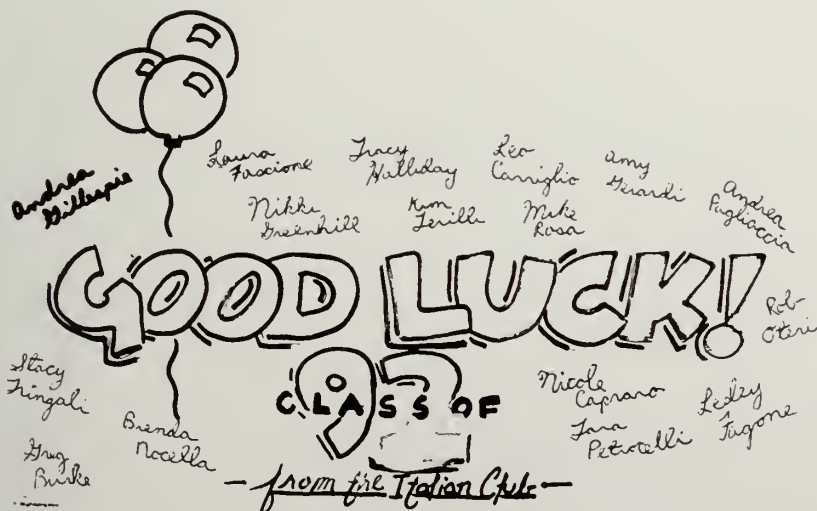 Andrea
Gillespie
Laura
Fascione
Tracy
Halliday
Leo
Carriglio
Amy
Gerardi
Andrea
Pugliaccia
Nikki
Greenhill
Kim
Terilli
Mike
Rosa
GOOD LUCK!
Rob
Oteri
Stacy
Tringali
Brenda
Nocella
Greg
Burke
92
CLASS OF
Nicole
Caprano
Tara
Petrocelli
Lesley
Fugone
- from the Italian Club -